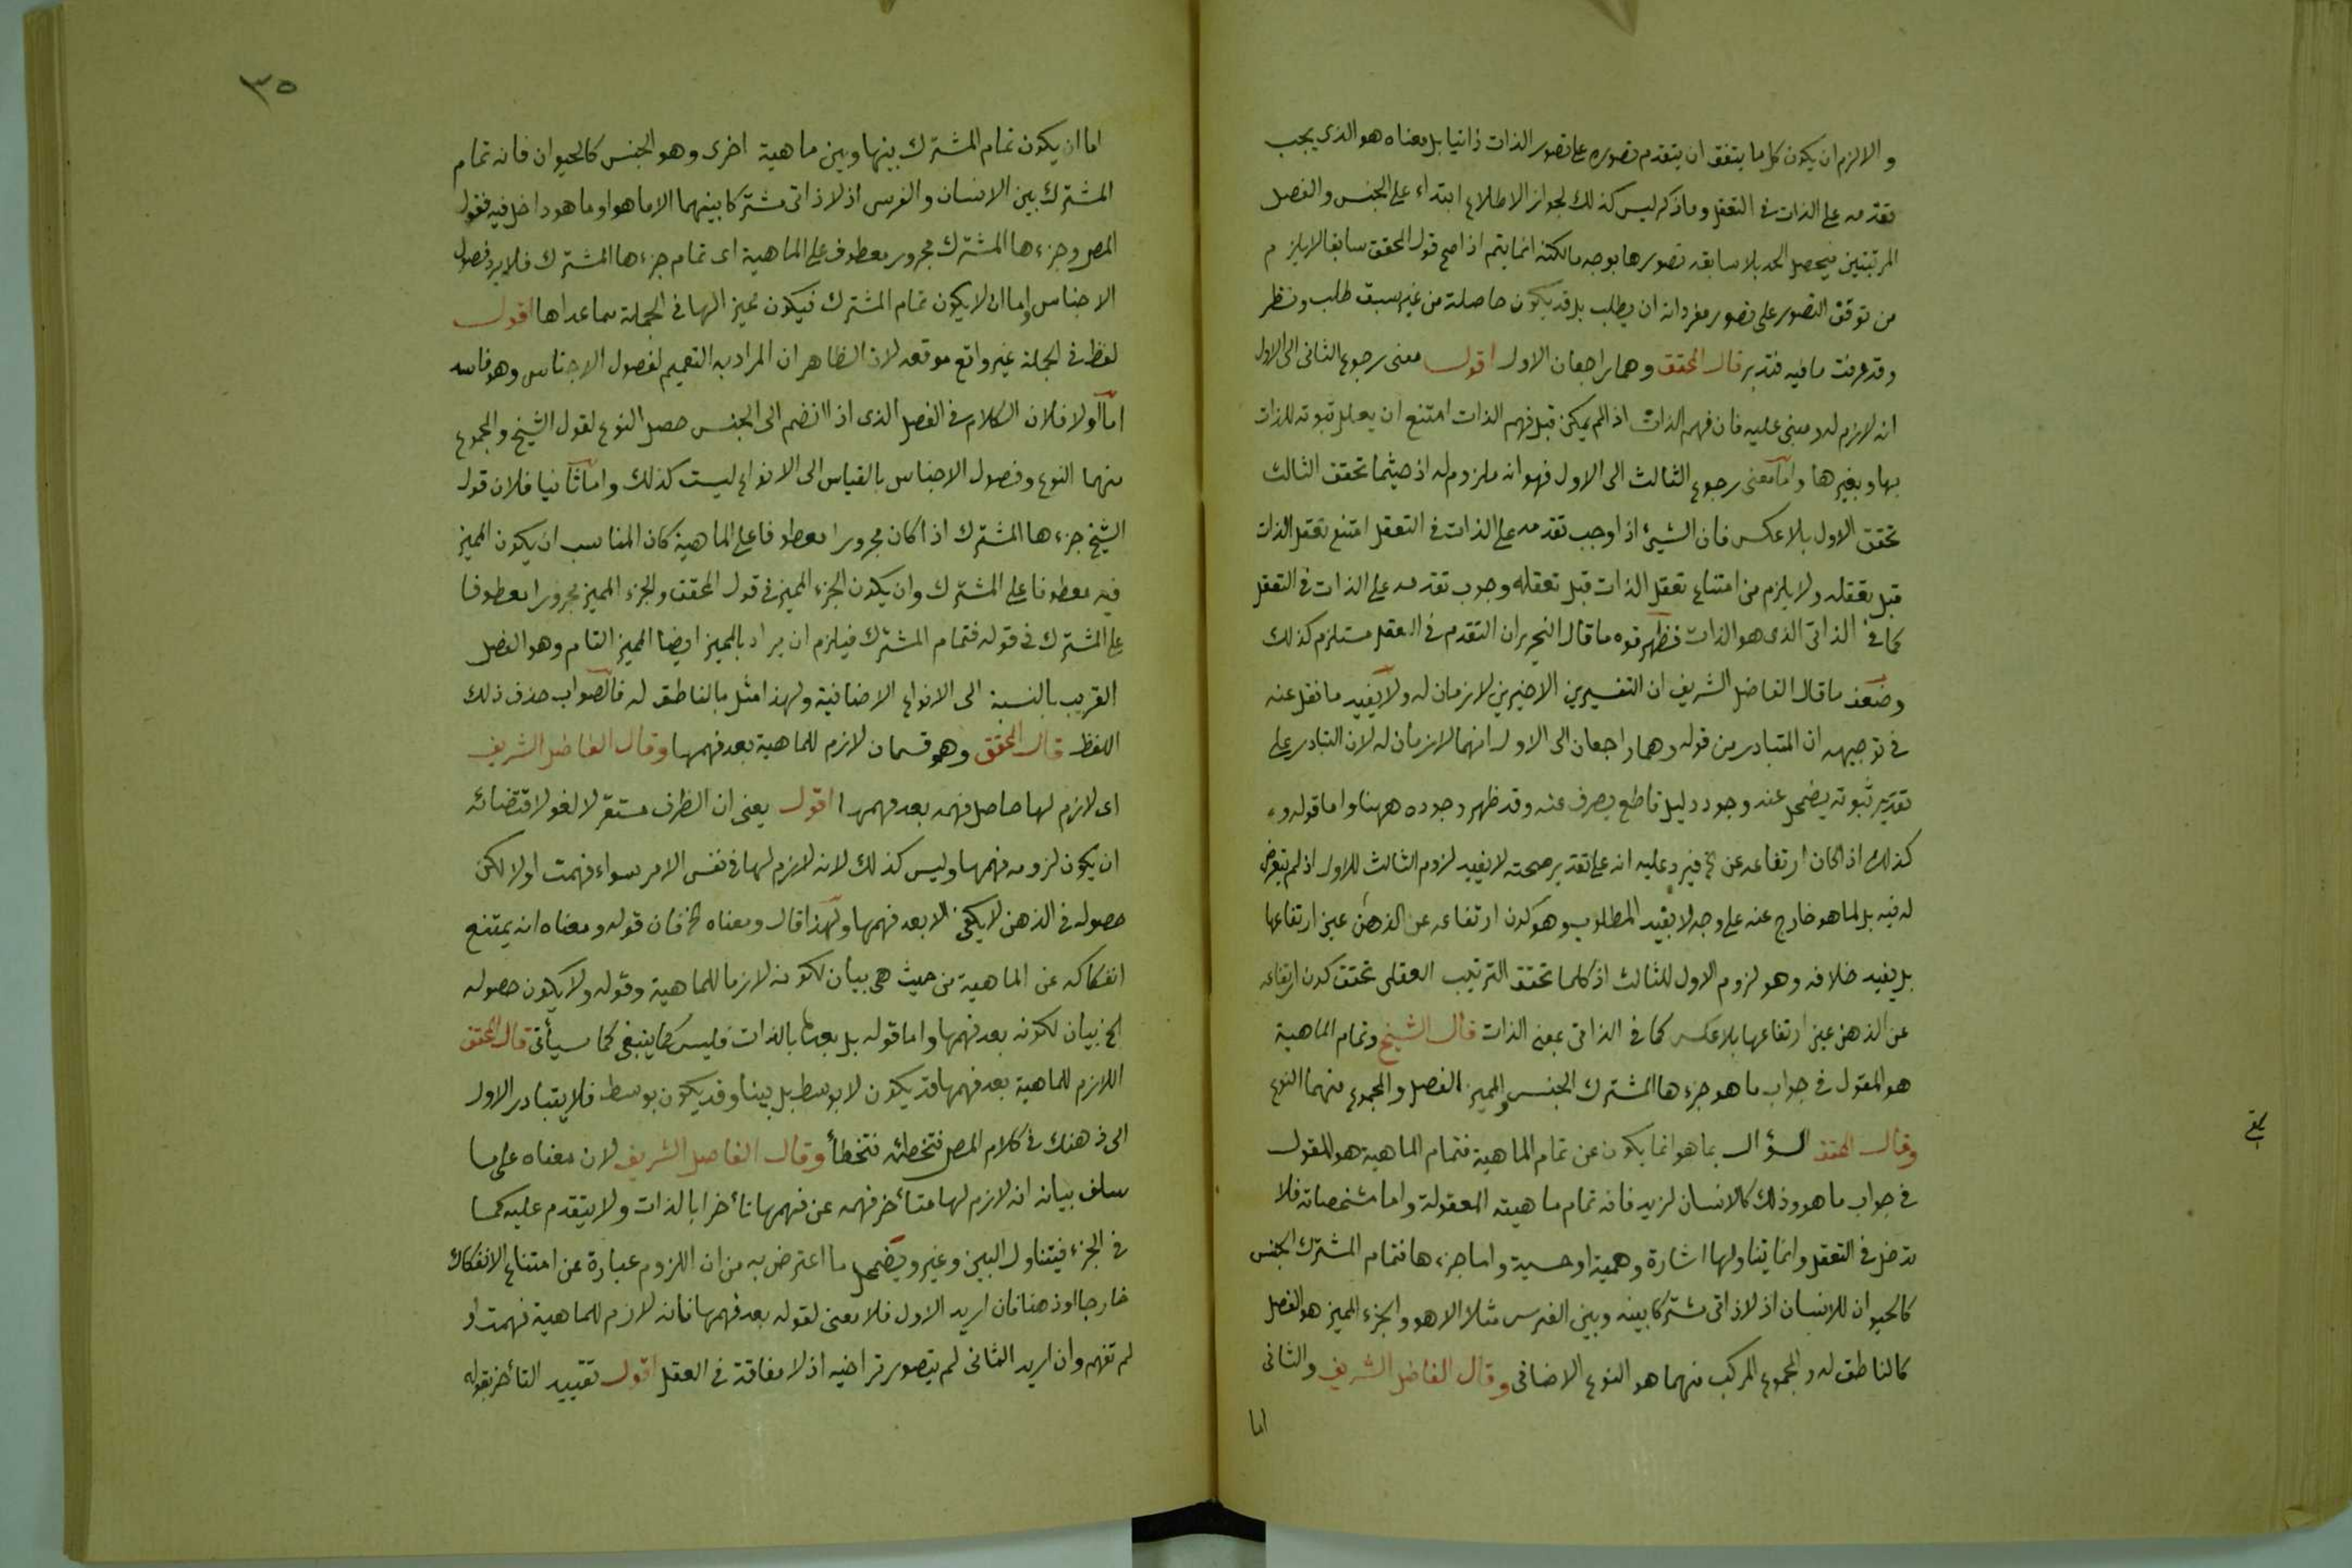 والا لزم ان يكون كل ما يتفق ان يتقدم تصوره على تصور الذات ذاتيا بل معناه هو الذى يجب
تقدمه على الذات فى التعقل وما ذكر ليس كذلك لجواز الاطلاع ابتداء على الجنس والفصل
المرتبتين فيحصل الحد بلا سابقة تصورها بوجه ما لكنه انما يتم اذا صح قول المحقق سابقا لا يلزم
من توقف التصور على تصور مفرداته ان يطلب بل قد يكون حاصلة من غير سبق طلب ونظر
وقد عرفت ما فيه فتدبر قال المحقق وهما راجعان الاول اقول معنى رجوع الثانى الى الاول
انه لازم له ومبنى عليه فان فهم الذات اذا لم يمكن قبل فهم الذات امتنع ان يعلل ثبوته للذات
بها وبغيرها واما معنى رجوع الثالث الى الاول فهو انه ملزوم له اذ حيثما تحقق الثالث
تحقق الاول بلا عكس فان الشىء اذا وجب تقدمه على الذات فى التعقل امتنع تعقل الذات
قبل تعقله ولا يلزم من امتناع تعقل الذات قبل تعقله وجوب تقدمه على الذات فى التعقل
كما فى الذاتى الذى هو الذات فظهر قوه ما قال النحرير ان التقدم فى العقل مستلزم كذلك
وضعف ما قال الفاضل الشريف ان التفسيرين الاخيرين لازمان له ولا يفيد ما نقل عنه
فى توجيهه ان المتبادر من قوله وهما راجعان الى الاول انهما لازمان له لان التبادر على
تقدير ثبوته يضمحل عند وجود دليل قاطع يصرف عنه وقد ظهر وجوده ههنا واما قوله
كذلك اذا كان ارتفاعه عن الخ فيرد عليه انه على تقدير صحته لا يفيد لزوم الثالث للاول اذ لم يتعرض
له فيه بل لما هو خارج عنه على وجه لا يفيد المطلوب وهو كون ارتفاعه عن الذهن عين ارتفاعها
بل يفيد خلافه وهو لزوم الاول للثالث اذ كلما تحقق الترتيب العقلى تحقق كون ارتفاعه
عن الذهن عين ارتفاعها بلا عكس كما فى الذاتى بمعنى الذات قال الشيخ وتمام الماهية
هو المقول فى جواب ما هو وجزءها المشترك الجنس والمميز الفصل والمجموع منهما النوع
وقال المحقق السؤال بما هو انما يكون عن تمام الماهية فتمام الماهية هو المقول
فى جواب ما هو وذلك كالانسان لزيد فانه تمام ماهيته المعقولة واما مشخصاته فلا
تدخل فى التعقل وانما يتناولها اشارة وهمية او حسية واما جزءها فتمام المشترك الجنس
كالحيوان للانسان اذ لا ذاتى مشتركا بينه وبين الفرس مثلا الا هو والجزء المميز هو الفصل
كالناطق له والمجموع المركب منهما هو النوع الاضافى وقال الفاضل الشريف والثانى
اما
٣٥
اما ان يكون تمام المشترك بينها وبين ماهية اخرى وهو الجنس كالحيوان فانه تمام
المشترك بين الانسان والفرس اذ لا ذاتى مشتركا بينهما الا ما هو او ما هو داخل فيه فقول
المص وجزءها المشترك مجرور معطوف على الماهية اى تمام جزءها المشترك فلا يرد فصول
الاجناس واما ان لا يكون تمام المشترك فيكون مميز الها فى الجملة عما عداها اقول
لفظ فى الجملة غير واقع موقعه لان الظاهر ان المراد به التعميم لفصول الاجناس وهو فاسد
اما اولا فلان الكلام فى الفصل الذى اذا انضم الى الجنس حصل النوع لقول الشيخ والمجموع
منهما النوع وفصول الاجناس بالقياس الى الانواع ليست كذلك واما ثانيا فلان قول
الشيخ جزءها المشترك اذا كان مجرورا معطوفا على الماهية كان المناسب ان يكون المميز
فيه معطوفا على المشترك وان يكون الجزء المميز فى قول المحقق والجزء المميز مجرورا معطوفا
على المشترك فى قوله فتمام المشترك فيلزم ان يراد بالمميز ايضا المميز التام وهو الفصل
القريب بالنسبة الى الانواع الاضافية ولهذا مثل بالناطق له فالصواب حذف ذلك
اللفظ قال المحقق وهو قسمان لازم للماهية بعد فهمها وقال الفاضل الشريف
اى لازم لها حاصل فهمه بعد فهمها اقول يعنى ان الظرف مستقر لا لغو لاقتضائه
ان يكون لزومه فهمها وليس كذلك لانه لازم لها فى نفس الامر سواء فهمت اولا لكن
حصوله فى الذهن لا يكون الا بعد فهمها ولهذا قال ومعناه الخ فان قوله ومعناه انه يمتنع
انفكاكه عن الماهية من حيث هى بيان لكونه لازما للماهية وقوله ولا يكون حصوله
الخ بيان لكونه بعد فهمها واما قوله بل بعدها بالذات فليس كما ينبغى كما سيأتى قال المحقق
اللازم للماهية بعد فهمها قد يكون لا بوسط بل بينا وقد يكون بوسط فلا يتبادر الاول
الى ذهنك فى كلام المص فتخطئه فتخطأ وقال الفاضل الشريف لان معناه على ما
سلف بيانه انه لازم لها متأخر فهمه عن فهمها تأخرا بالذات ولا يتقدم عليه كما
فى الجزء فيتناول البين وغيره ويضمحل ما اعترض به من ان اللزوم عبارة عن امتناع الانفكاك
خارجا او ذهنا فان اريد الاول فلا معنى لقوله بعد فهمها فانه لازم للماهية فهمت او
لم تفهم وان اريد الثانى لم يتصور تراخيه اذ لا مفارقة فى العقل اقول تقييد التأخر بقوله